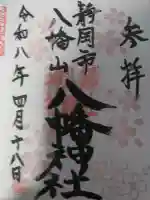 参拝
静岡市
八幡山
八幡神社
令和八年四月十八日